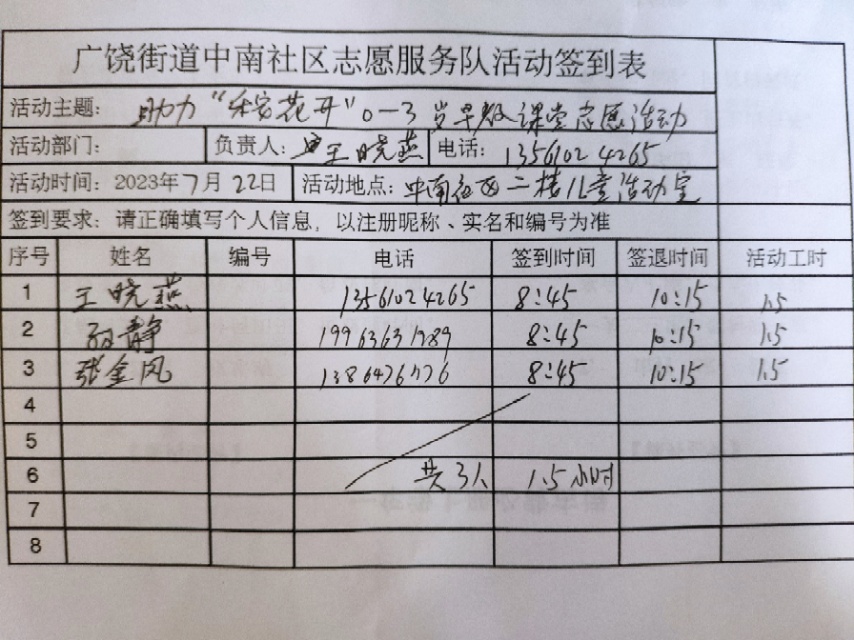 广饶街道中南社区志愿服务队活动签到表
活动主题: 助力“穗花开”0—3岁早教课堂志愿活动
活动部门: 负责人: 王晓燕 电话: 13561024265
活动时间: 2023年7月22日 活动地点: 中南社区二楼儿童活动室
签到要求: 请正确填写个人信息, 以注册昵称、实名和编号为准
序号 姓名 编号 电话 签到时间 签退时间 活动工时
1 王晓燕 13561024265 8:45 10:15 1.5
2 静 8:45 10:15 1.5
3 张金风 8:45 10:15 1.5
4
5
6 共3人 1.5小时
7
8